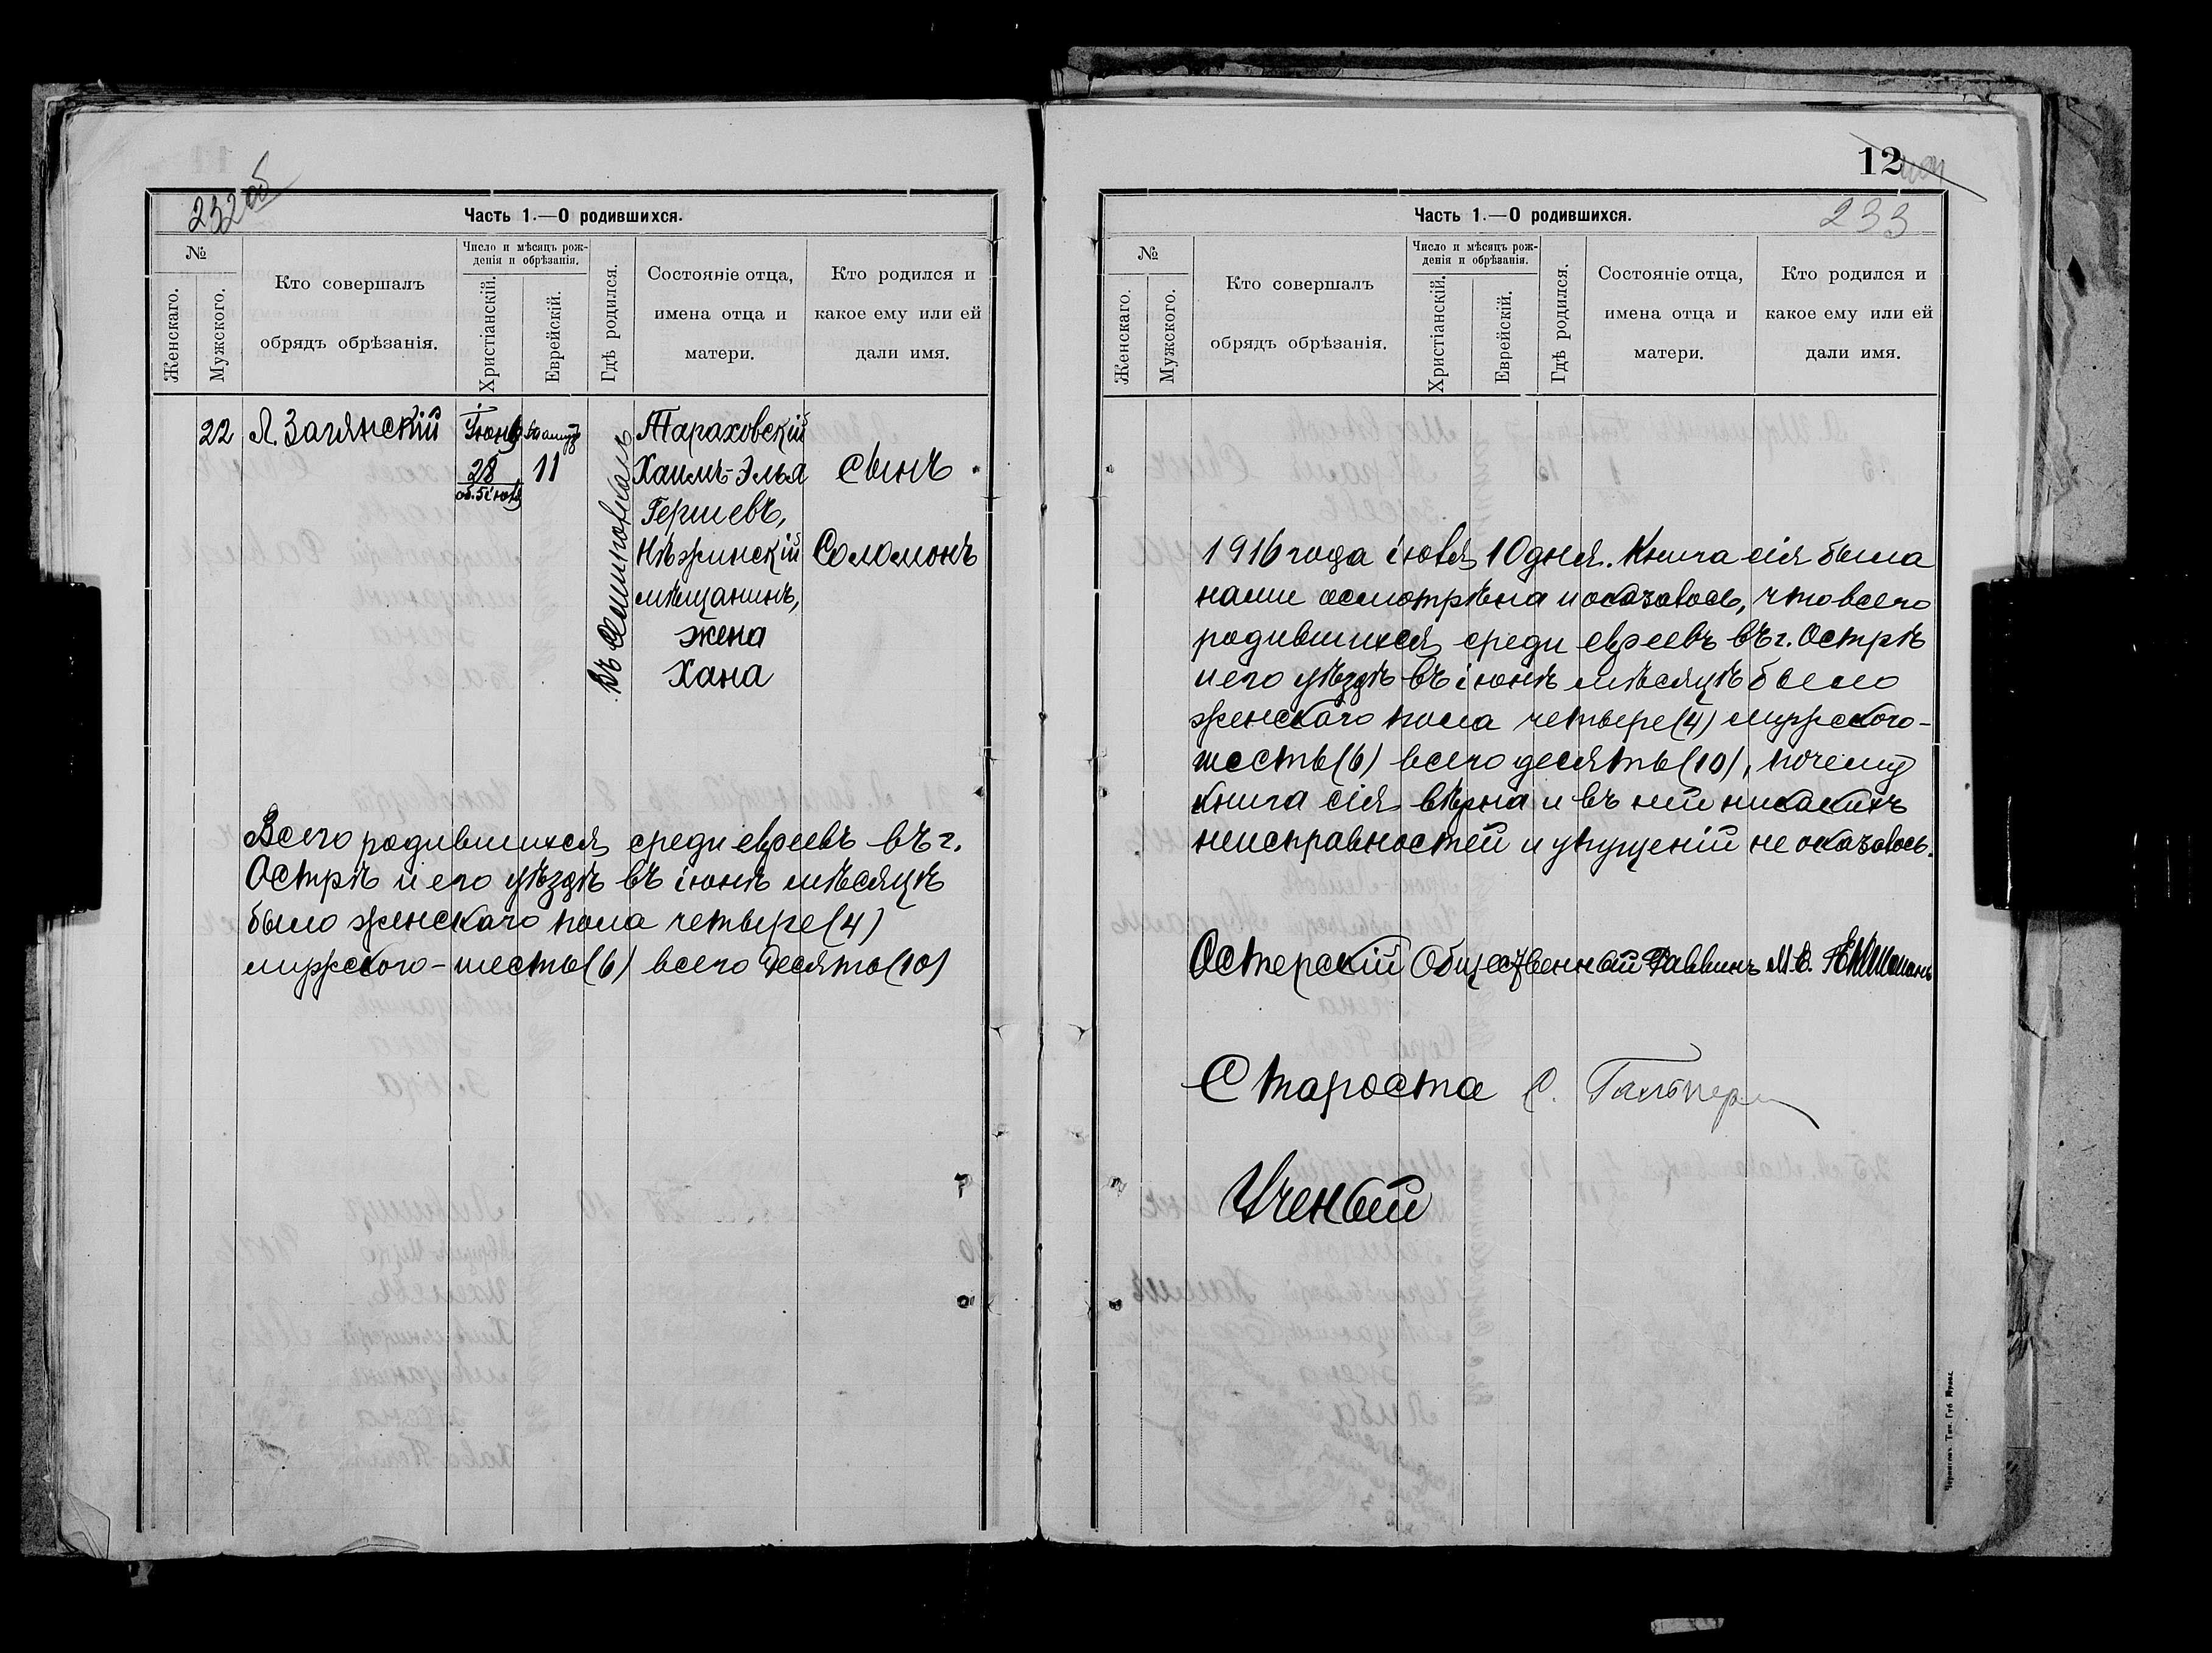 232 об
Часть 1.—О родившихся.
№
Женскаго.
Мужского.
Кто совершалъ
обрядъ обрѣзанія.
Число и мѣсяцъ рож-
денія и обрѣзанія.
Христіанскій.
Еврейскій.
Гдѣ родился.
Состояніе отца,
имена отца и
матери.
Кто родился и
какое ему или ей
дали имя.
22
Л. Загянскій
Іюня
28
об. 5 іюля
Тамузъ
11
Тараховскій
Хаимъ-Элья
Гершевъ,
Нѣжинскій
мѣщанинъ,
жена
Хана
сынъ
Соломонъ
Всего родившихся среди евреевъ въ г.
Острѣ и его уѣздѣ въ іюнѣ мѣсяцѣ
было женскаго пола четыре (4)
мужского - шесть (6) всего десять (10)
12
233
Часть 1.—О родившихся.
№
Женскаго.
Мужского.
Кто совершалъ
обрядъ обрѣзанія.
Число и мѣсяцъ рож-
денія и обрѣзанія.
Христіанскій.
Еврейскій.
Гдѣ родился.
Состояніе отца,
имена отца и
матери.
Кто родился и
какое ему или ей
дали имя.
1916 года іюля 10 дня. Книга сія была
нами осмотрѣна и оказалось, что всего
родившихся среди евреевъ въ г. Острѣ
и его уѣздѣ въ іюнѣ мѣсяцѣ было
женскаго пола четыре (4) мужского -
шесть (6) всего десять (10), почему
книга сія вѣрна и въ ней никакихъ
неисправностей и упущеній не оказалось.
Остерскій Общественный Раввинъ М. В.
Староста С. Гальперн
Ученый
Черниговъ. Тип. Губ. Правл.